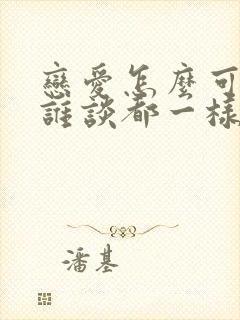 戀愛怎麼可
誰談都一樣
潘基